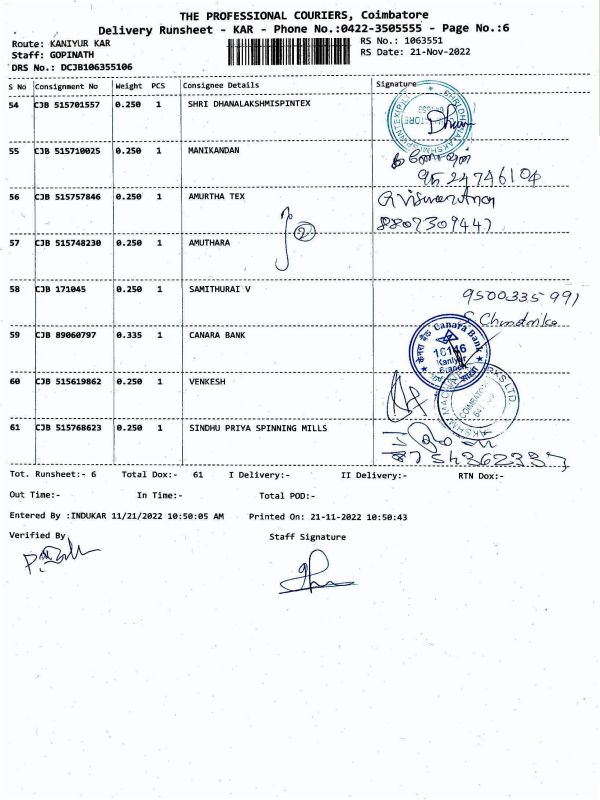 THE PROFESSIONAL COURIERS, Coimbatore
Delivery Runsheet - KAR - Phone No.:0422-3505555 - Page No.:6
Route: KANIYUR KAR
RS No.: 1063551
Staff: GOPINATH
RS Date: 21-Nov-2022
DRS No.: DCJB106355106
S No Consignment No Weight PCS Consignee Details Signature
54 CJB 515701557 0.250 1 SHRI DHANALAKSHMISPINTEX
55 CJB 515710025 0.250 1 MANIKANDAN
9524746104
56 CJB 515757846 0.250 1 AMURTHA TEX
8807309447
2
57 CJB 515748230 0.250 1 AMUTHARA
58 CJB 171045 0.250 1 SAMITHURAI V
9500335991
59 CJB 89060797 0.335 1 CANARA BANK
Canara Bank
16146
Kaniyur
60 CJB 515619862 0.250 1 VENKESH
COIMBATORE
61 CJB 515768623 0.250 1 SINDHU PRIYA SPINNING MILLS
8754362337
Tot. Runsheet:- 6 Total Dox:- 61 I Delivery:- II Delivery:- RTN Dox:-
Out Time:- In Time:- Total POD:-
Entered By :INDUKAR 11/21/2022 10:50:05 AM Printed On: 21-11-2022 10:50:43
Verified By Staff Signature